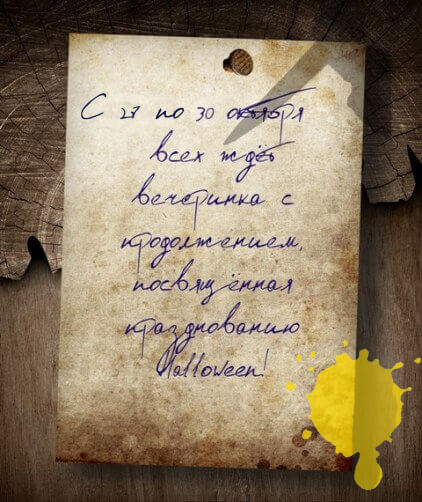 С 27 по 30 октября
всех ждёт
вечеринка с
продолжением,
посвящённая
празднованию
Halloween!